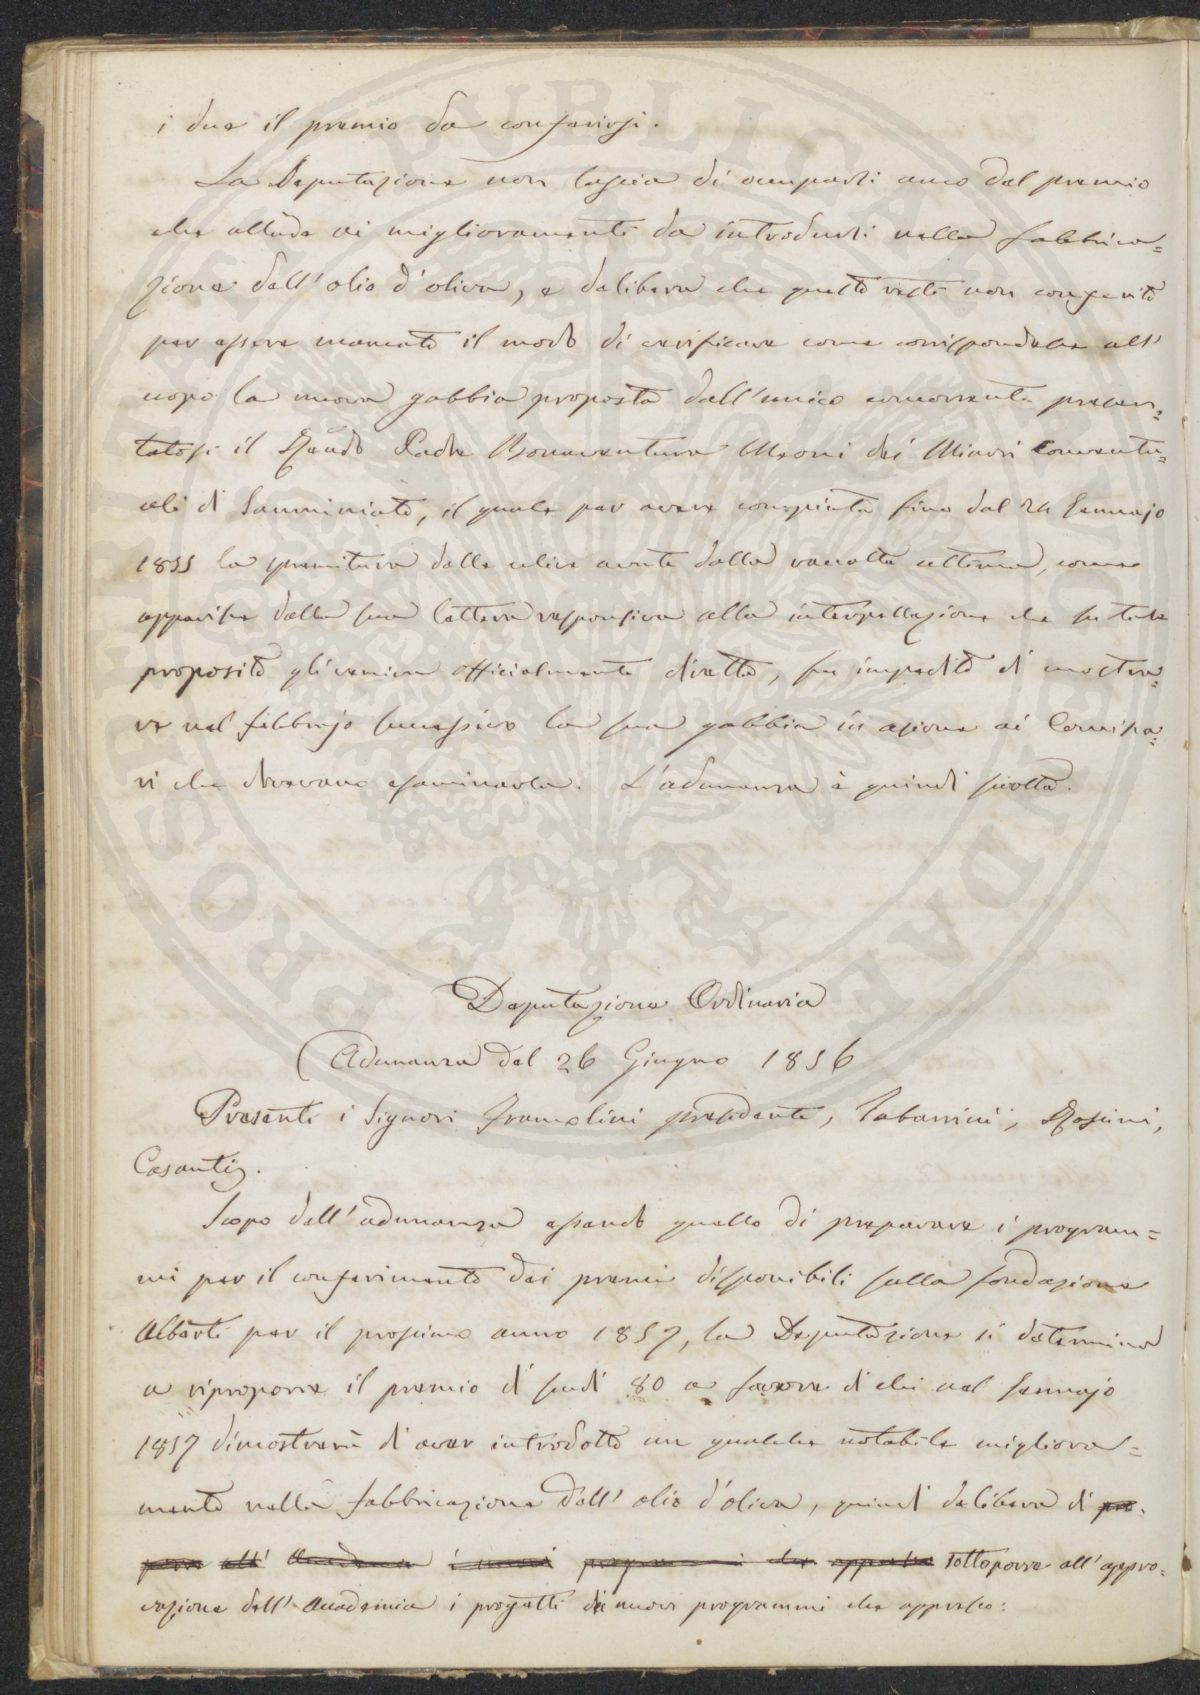 i due il premio da conferirsi.
La Deputazione non lascia di occuparsi anco del premio
che allude ai miglioramenti da introdursi nella fabbrica=
zione dell'olio d'oliva, e delibera che questo resti non conferito
per essere mancato il modo di verificare come corrispondesse all'
uopo la nuova gabbia proposta dall'unico concorrente presen=
tatosi il Rendo Padre Bonaventura Meoni dei Minori Conventu=
ali di Samminiato, il quale per avere compiuta fino dal 24 Gennajo
1855 la premitura delle ulive avute dalla raccolta ultima, come
apparisce dalla sua lettera responsiva alla interpellazione che su tale
proposito gli veniva officialmente diretta, fu impedito di mostra=
re nel febbrajo successivo la sua gabbia in azione ai Commissa=
ri che dovevano esaminarla. L'adunanza è quindi sciolta.
Deputazione Ordinaria
Adunanza del 26 Giugno 1856
Presenti i Signori presidente, Tabarrini, Casanti.
Scopo dell'adunanza essendo quello di preparare i program=
mi per il conferimento dei premi disponibili sulla fondazione
Alberti per il prossimo anno 1857, la Deputazione si determina
a riproporre il premio di scudi 80 a favore di chi nel Gennajo
1857 dimostrerà di aver introdotto un qualche notabile migliora=
mento nella fabbricazione dell'olio d'oliva, quindi delibera di pro=
porre all'Accademia i nuovi programmi che appresso sottoporre all'appro=
vazione dell'Accademia i progetti di nuovi programmi che appresso:
PROSPERITATI PUBLICAE AUGENDAE